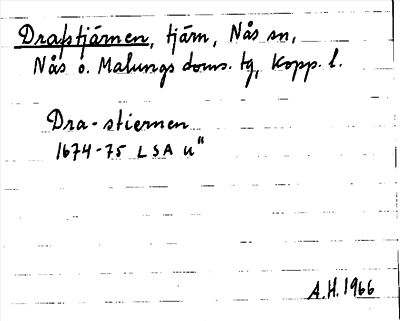 Drafstjärnen, tjärn, Nås sn,
Nås o. Malungs doms. tg, Kopp. l.
Dra-stiernen
1674-75 LSA u"
A.H. 1966